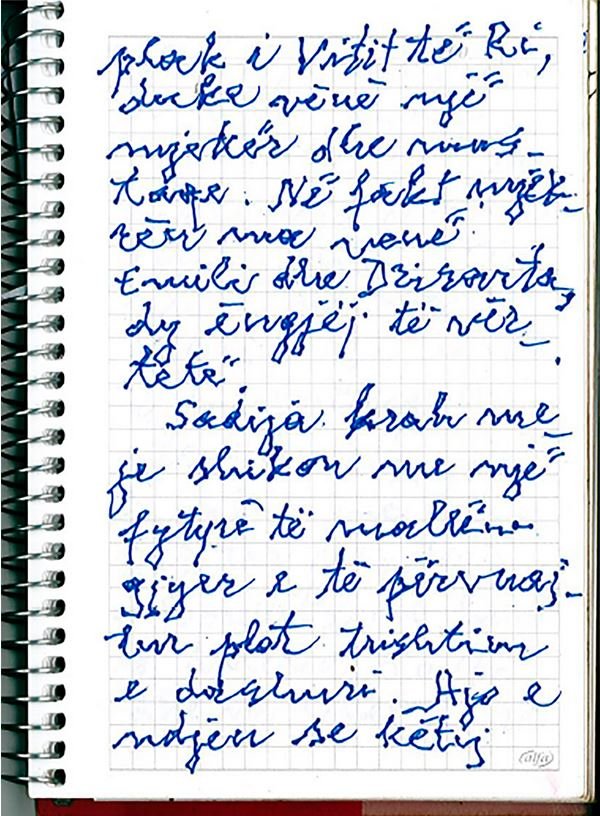 plak i Vitit të Ri,
duke vënë një
mjekër dhe mus-
taqe. Në fakt mjek-
rën ma vënë
Emili dhe
dy ëngjëj të vër-
tetë.
Sadija krah me-
je shikon me një
fytyrë të
e të përvuaj-
tur plot trishtim
e dashuri. Ajo e
ndjen se këtij
alfa